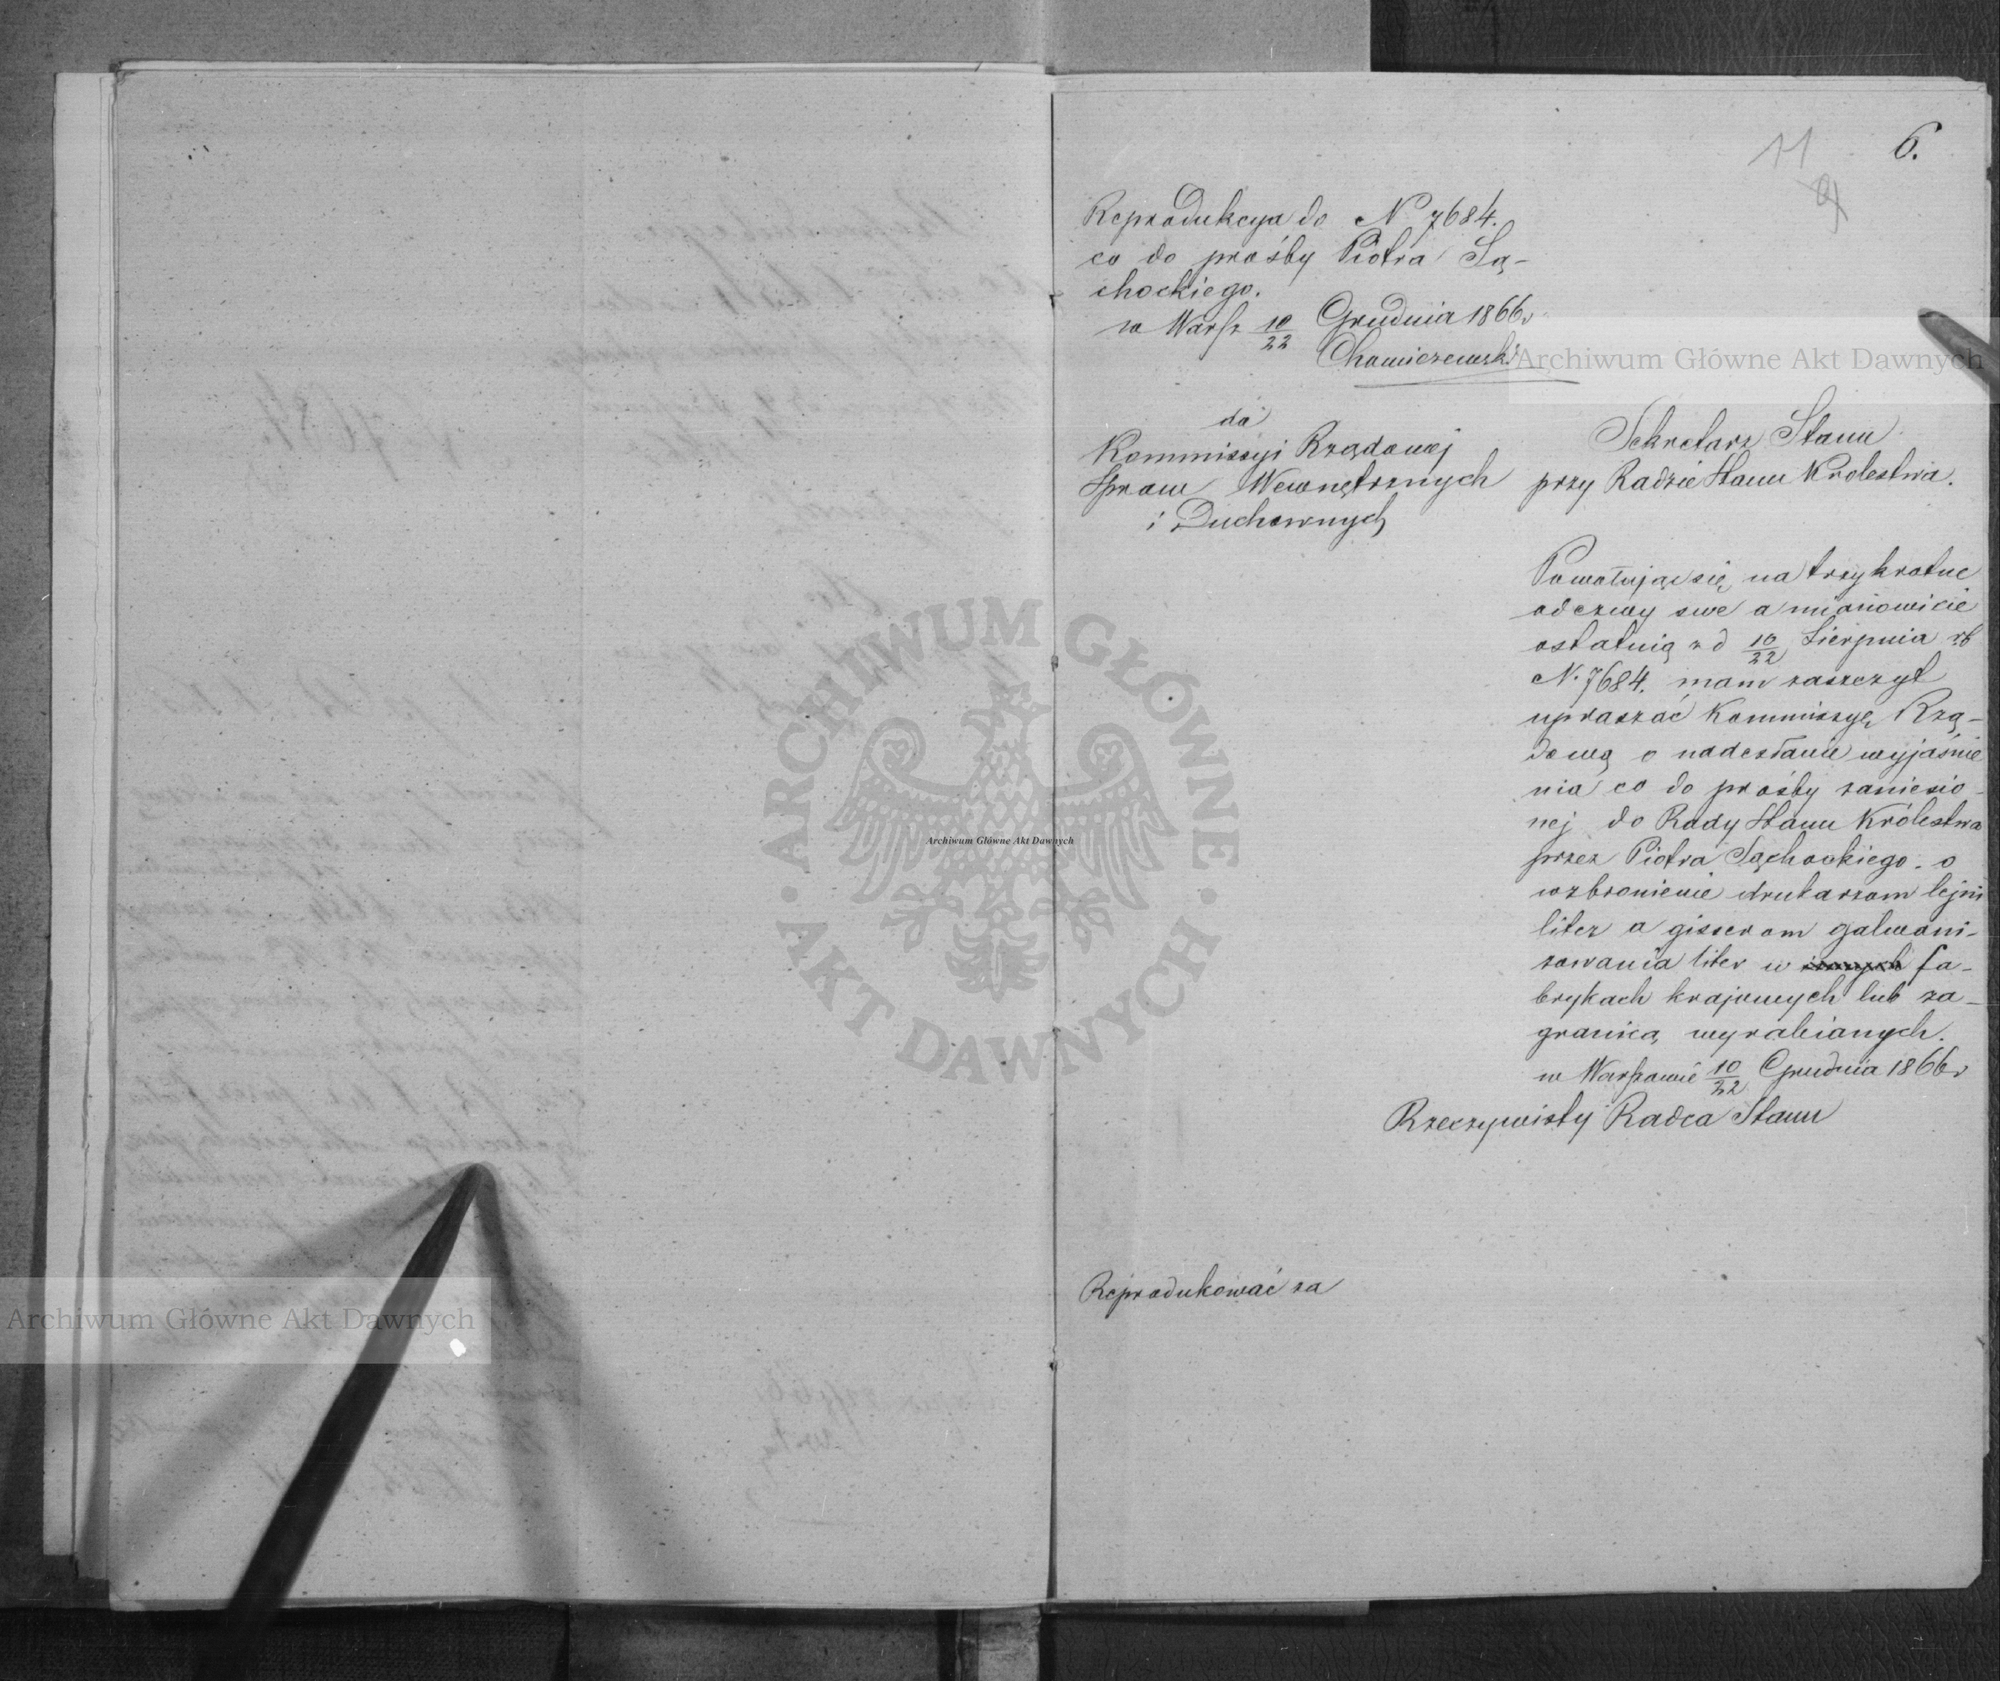 11 6.
Reprodukcya do N 7684.
co do prośby Piotra Są-
chockiego.
w Warsz 10/22 Grudnia 1866 r
do
Kommissyi Rządowej
Spraw Wewnętrznych
i Duchownych
Sekretarz Stanu
przy Radzie Stanu Królestwa.
Powołując się na trzykrotne
odezwy swe a mianowicie
ostatnią z d 10/22 Sierpnia rb
N. 7684. mam zaszczyt
upraszać Kommissyę Rzą-
dową o nadesłanie wyjaśnie
nia co do prośby zaniesio-
nej do Rady Stanu Królestwa
przez Piotra Sąchockiego o
wzbronienie drukarzom lejni
liter a gisserom galwani-
zowania liter w fa-
brykach krajowych lub za-
granicą wyrabianych.
w Warszawie 10/22 Grudnia 1866 r
Rzeczywisty Radca Stanu
Reprodukować za
Archiwum Główne Akt Dawnych
Archiwum Główne Akt Dawnych
Archiwum Główne Akt Dawnych
ARCHIWUM GŁÓWNE
AKT DAWNYCH